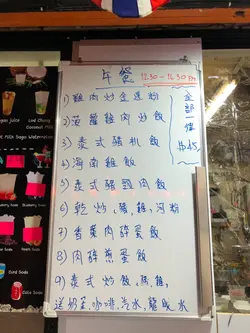 午餐
12.30 - 16.30
1) 雞肉炒金邊粉
2) 菠蘿雞肉炒飯
3) 泰式豬扒飯
4) 海南雞飯
5) 泰式豬頸肉飯
6) 乾炒, 豬, 雞, 河粉
7) 香葉肉碎蛋飯
8) 肉碎煎蛋飯
9) 泰式炒飯, 豬, 雞,
送奶茶, 咖啡, 汽水, 
全部一律
$45
Coconut Milk
Sago Watermelon
Soda